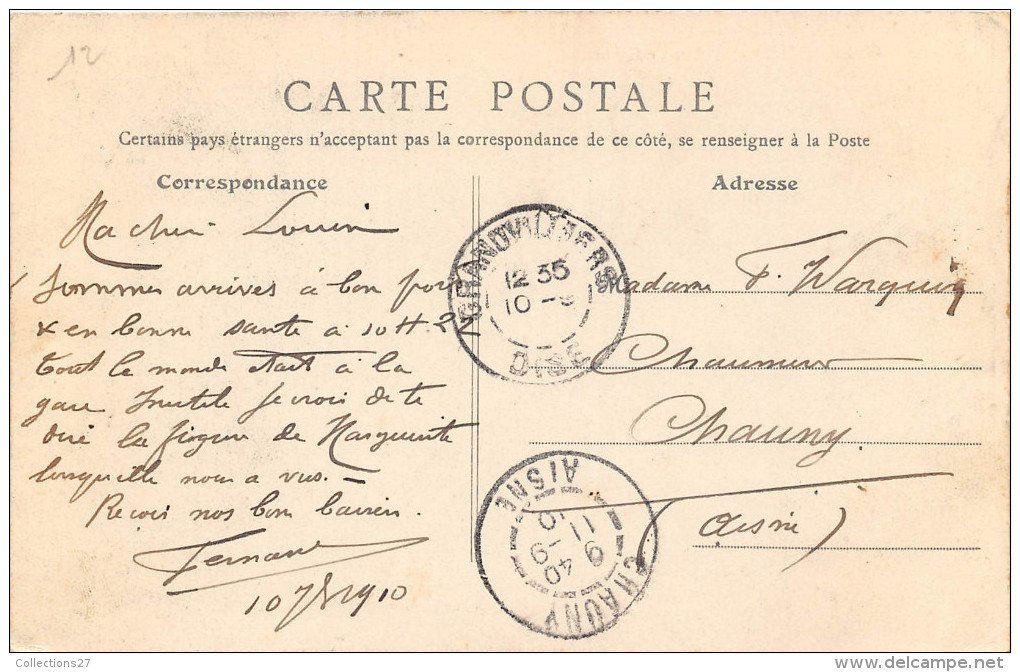 12
CARTE POSTALE
Certains pays étrangers n'acceptant pas la correspondance de ce côté, se renseigner à la Poste
Correspondance
Adresse
Ma cheri Louise
Sommes arrives à bon port
& en bonne santé à 10 H 2
tout le monde était à la
gare Inutile je crois de te
dire la figure de Marguerite
lorsqu'elle nous a vus. —
Reçois nos bon baisers.
Fernand
10 7bre 1910
GRANDVILLIERS
12 35
10 -9
OISE
Madame F. Warquin
Chauny
(Aisne)
AISNE
11 -9
9 40
CHAUNY
Collections27
delcampe.net